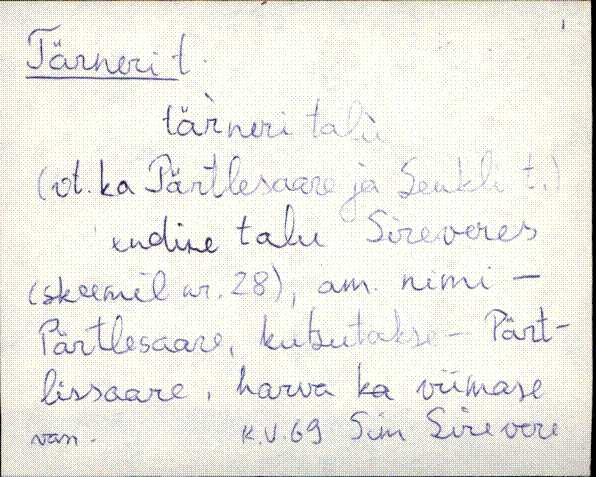 Tärneri t.
tär̀neri talu
(vt. ka Pärtlesaare ja Senkli t.)
endine talu Sireveres
(skeemil nr. 28), am. nimi –
Pärtlesaare, kutsutakse – Pärt-
lissaare, harva ka viimase
van. K.V. 69 Sim Sirevere